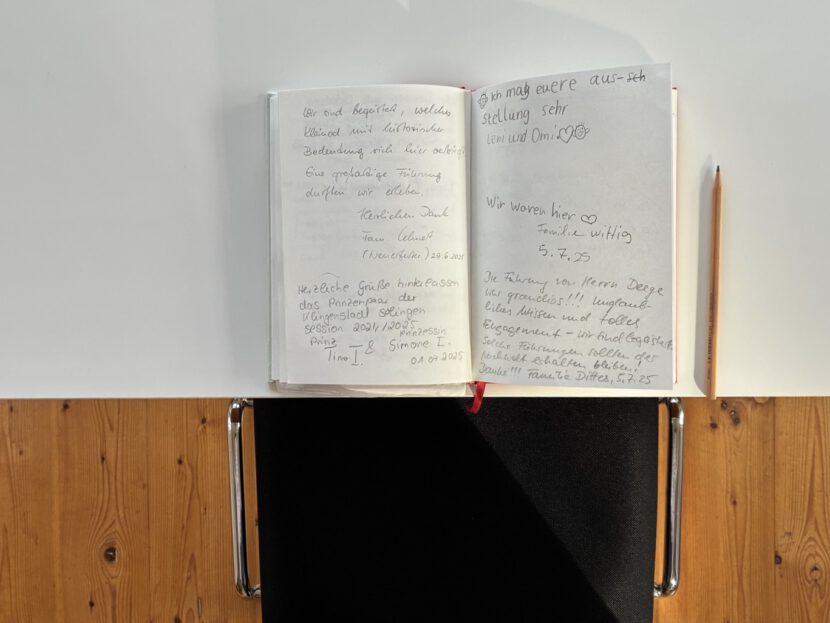 Wir sind begeistert, welches
Kleinod mit historischer
Bedeutung sich hier
Eine großartige Führung
durften wir erleben.
Herzlichen Dank
Fam.
29.6.2025
Herzliche Grüße hinterlassen
das Prinzenpaar der
Klingenstadt Solingen
Session 2024/2025
Prinz Prinzessin
Timo I. & Simone I.
01.07.2025
Ich mag euere aus-sch
stellung sehr
Leni und Omi
Wir waren hier ♡
Familie Wittig
5.7.25
Die Führung von Herrn Deege
war grandios!!! Unglaub-
liches Wissen und tolles
Engagement - wir sind begeistert.
Solche Führungen sollten der
Nachwelt erhalten bleiben!
Danke!!! Familie Ditter, 5.7.25